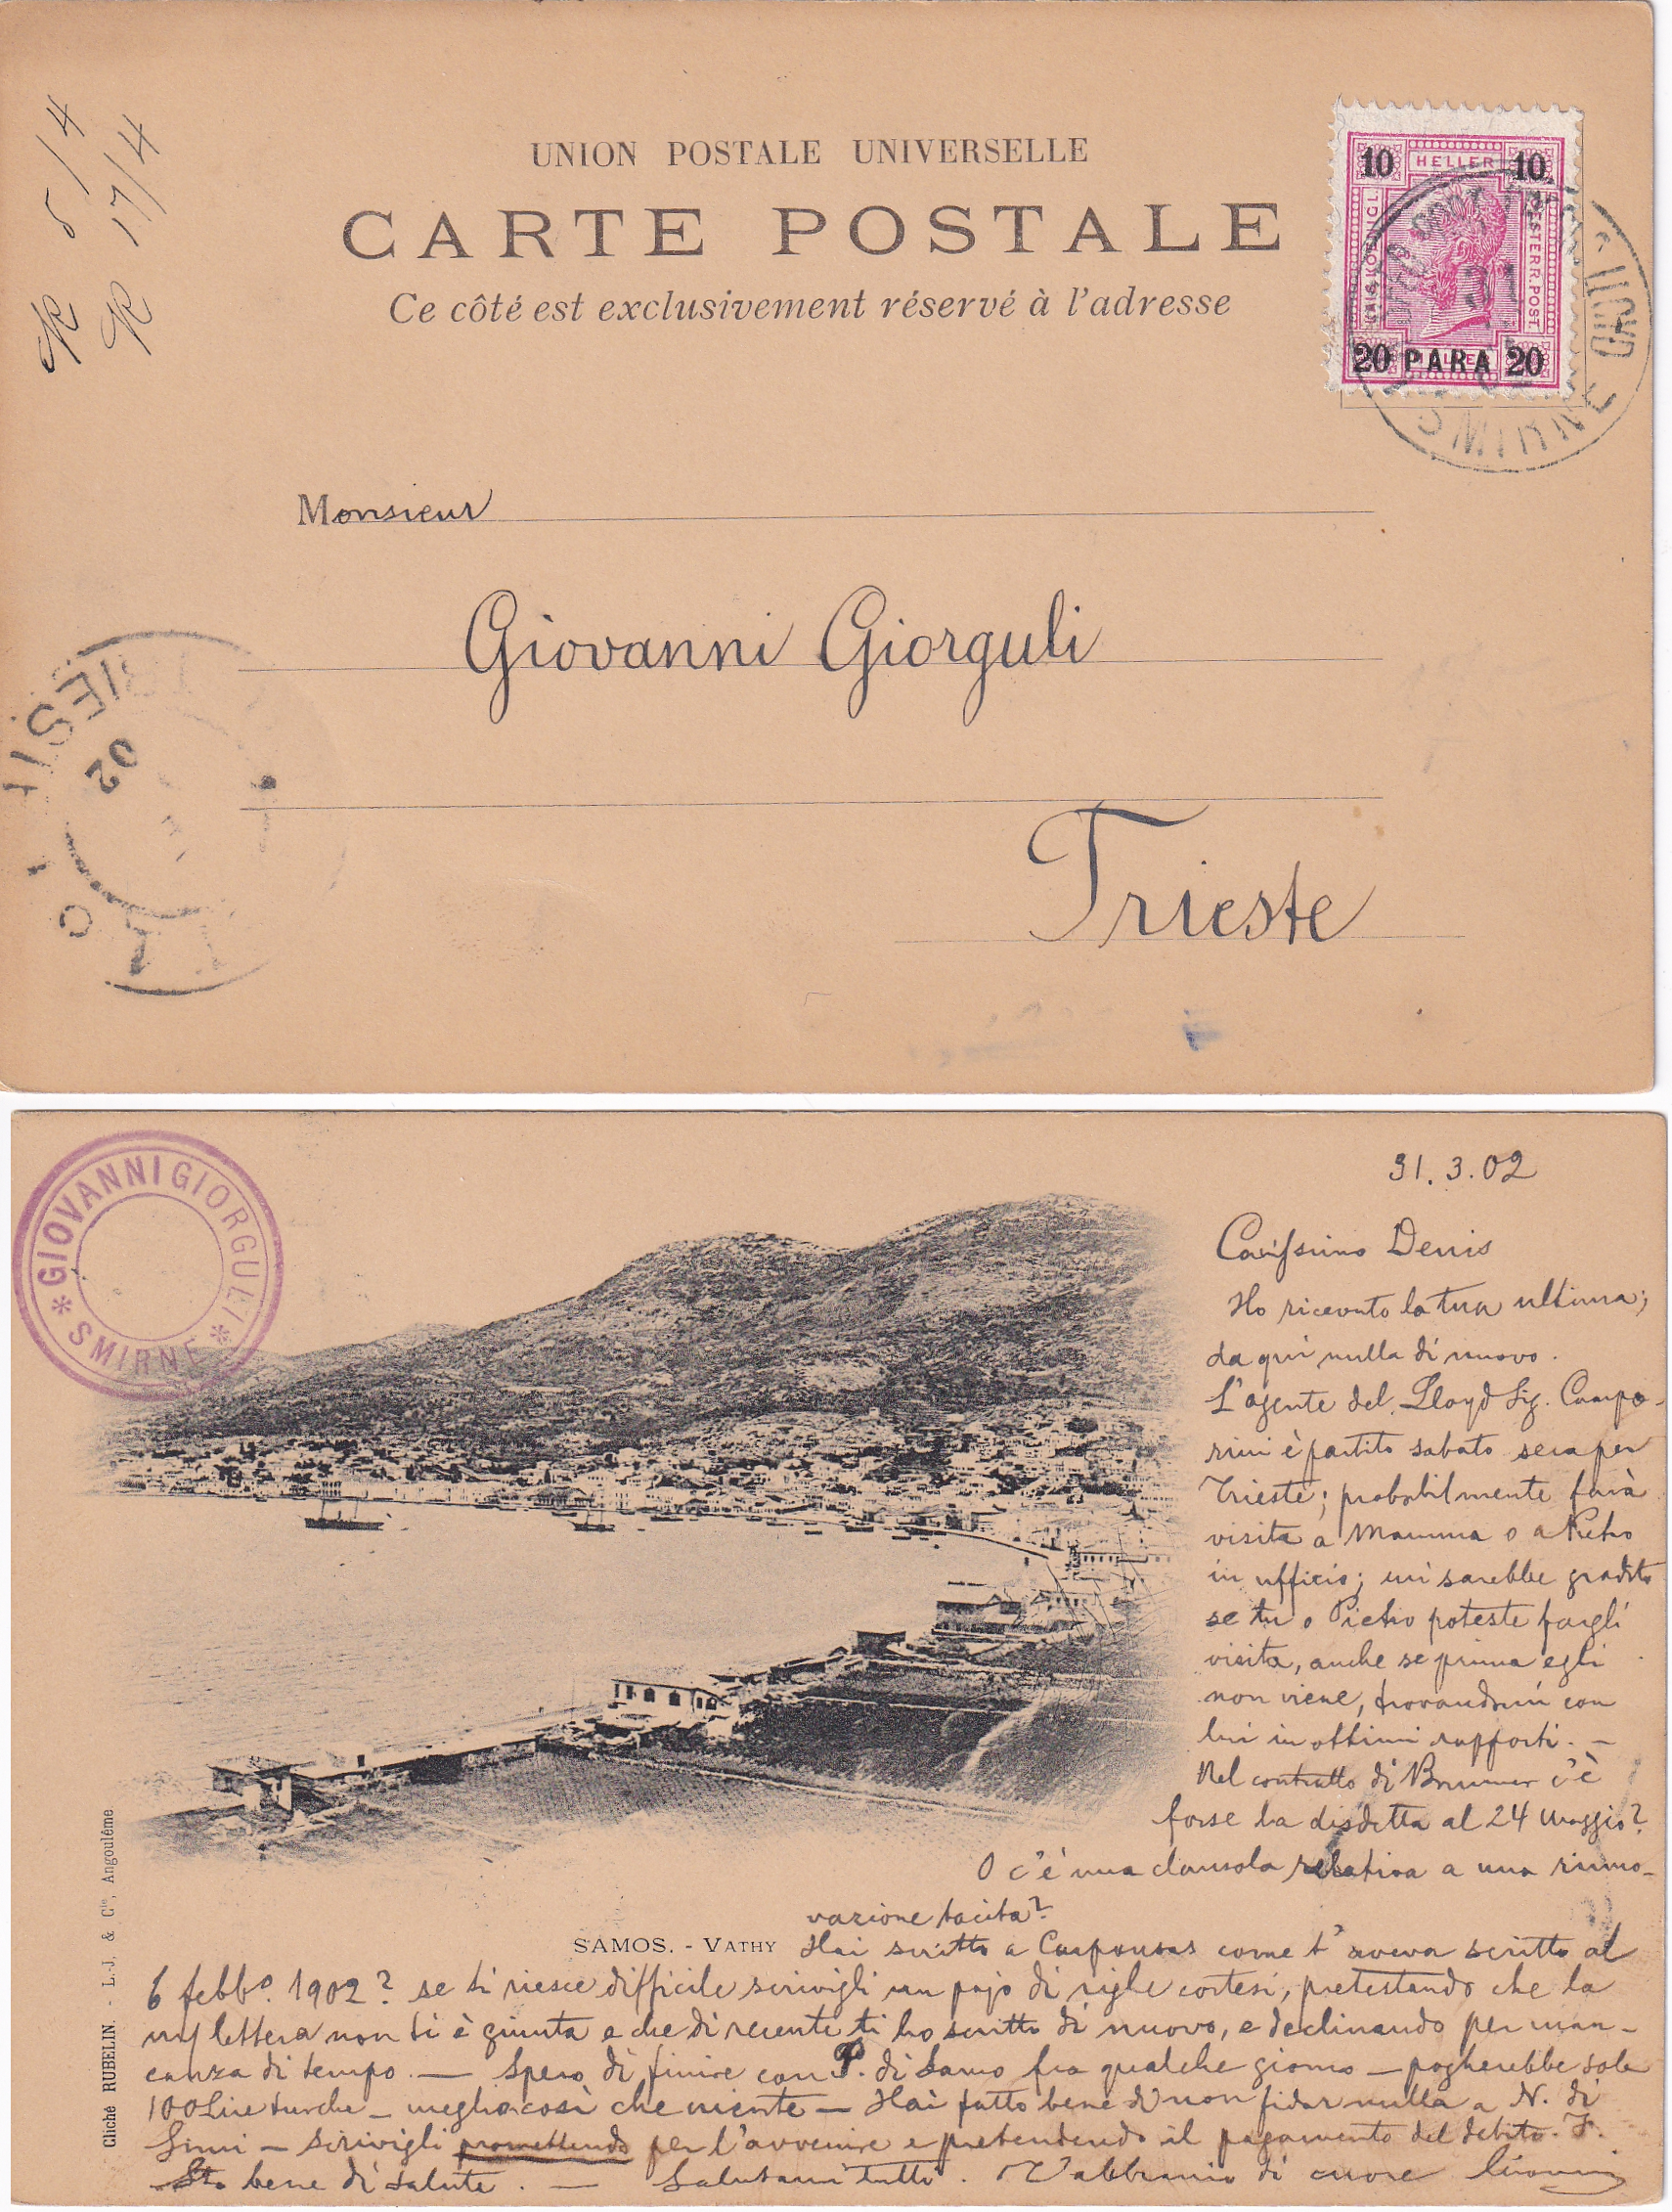 R 5/4
R 17/4
UNION POSTALE UNIVERSELLE
CARTE POSTALE
Ce côté est exclusivement réservé à l'adresse
10 HELLER 10
KAIS. KÖNIGL.
OESTERR. POST.
20 PARA 20
SMIRNE
Monsieur
Giovanni Giorguli
Trieste
TRIEST
02
GIOVANNI GIORGULI
* SMIRNE *
31.3.02
Carissimo Denis
Ho ricevuto la tua ultima;
da qui nulla di nuovo.
L'agente del Lloyd Sig. Campo-
rini è partito sabato sera per
Trieste; probabilmente farà
visita a Mamma o a Pietro
in ufficio; mi sarebbe gradito
se tu o Pietro poteste fargli
visita, anche se prima egli
non viene, trovandomi con
lui in ottimi rapporti. —
Nel contratto di Brunner c'è
forse la disdetta al 24 Maggio?
O c'è una clausola relativa a una rinno-
vazione tacita?
SAMOS. - VATHY
Hai scritto a come t'aveva scritto al
6 febbo. 1902? se ti riesce difficile scrivigli un pajo di righe cortesi, pretestando che la
lettera non ti è giunta e che di recente ti ho scritto di nuovo, e declinando per man-
canza di tempo. — Spero di finire con P. di Samo fra qualche giorno — pagherebbe sole
100 Lire turche — meglio così che niente — Hai fatto bene di non fidar nulla a N. di
Simi — Scrivigli promettendo per l'avvenire e pretendendo il pagamento del debito. F.
Sto bene di salute. — Salutami tutti. T'abbraccio di cuore
Cliché RUBELLIN. - L.-J. & Cie, Angoulême